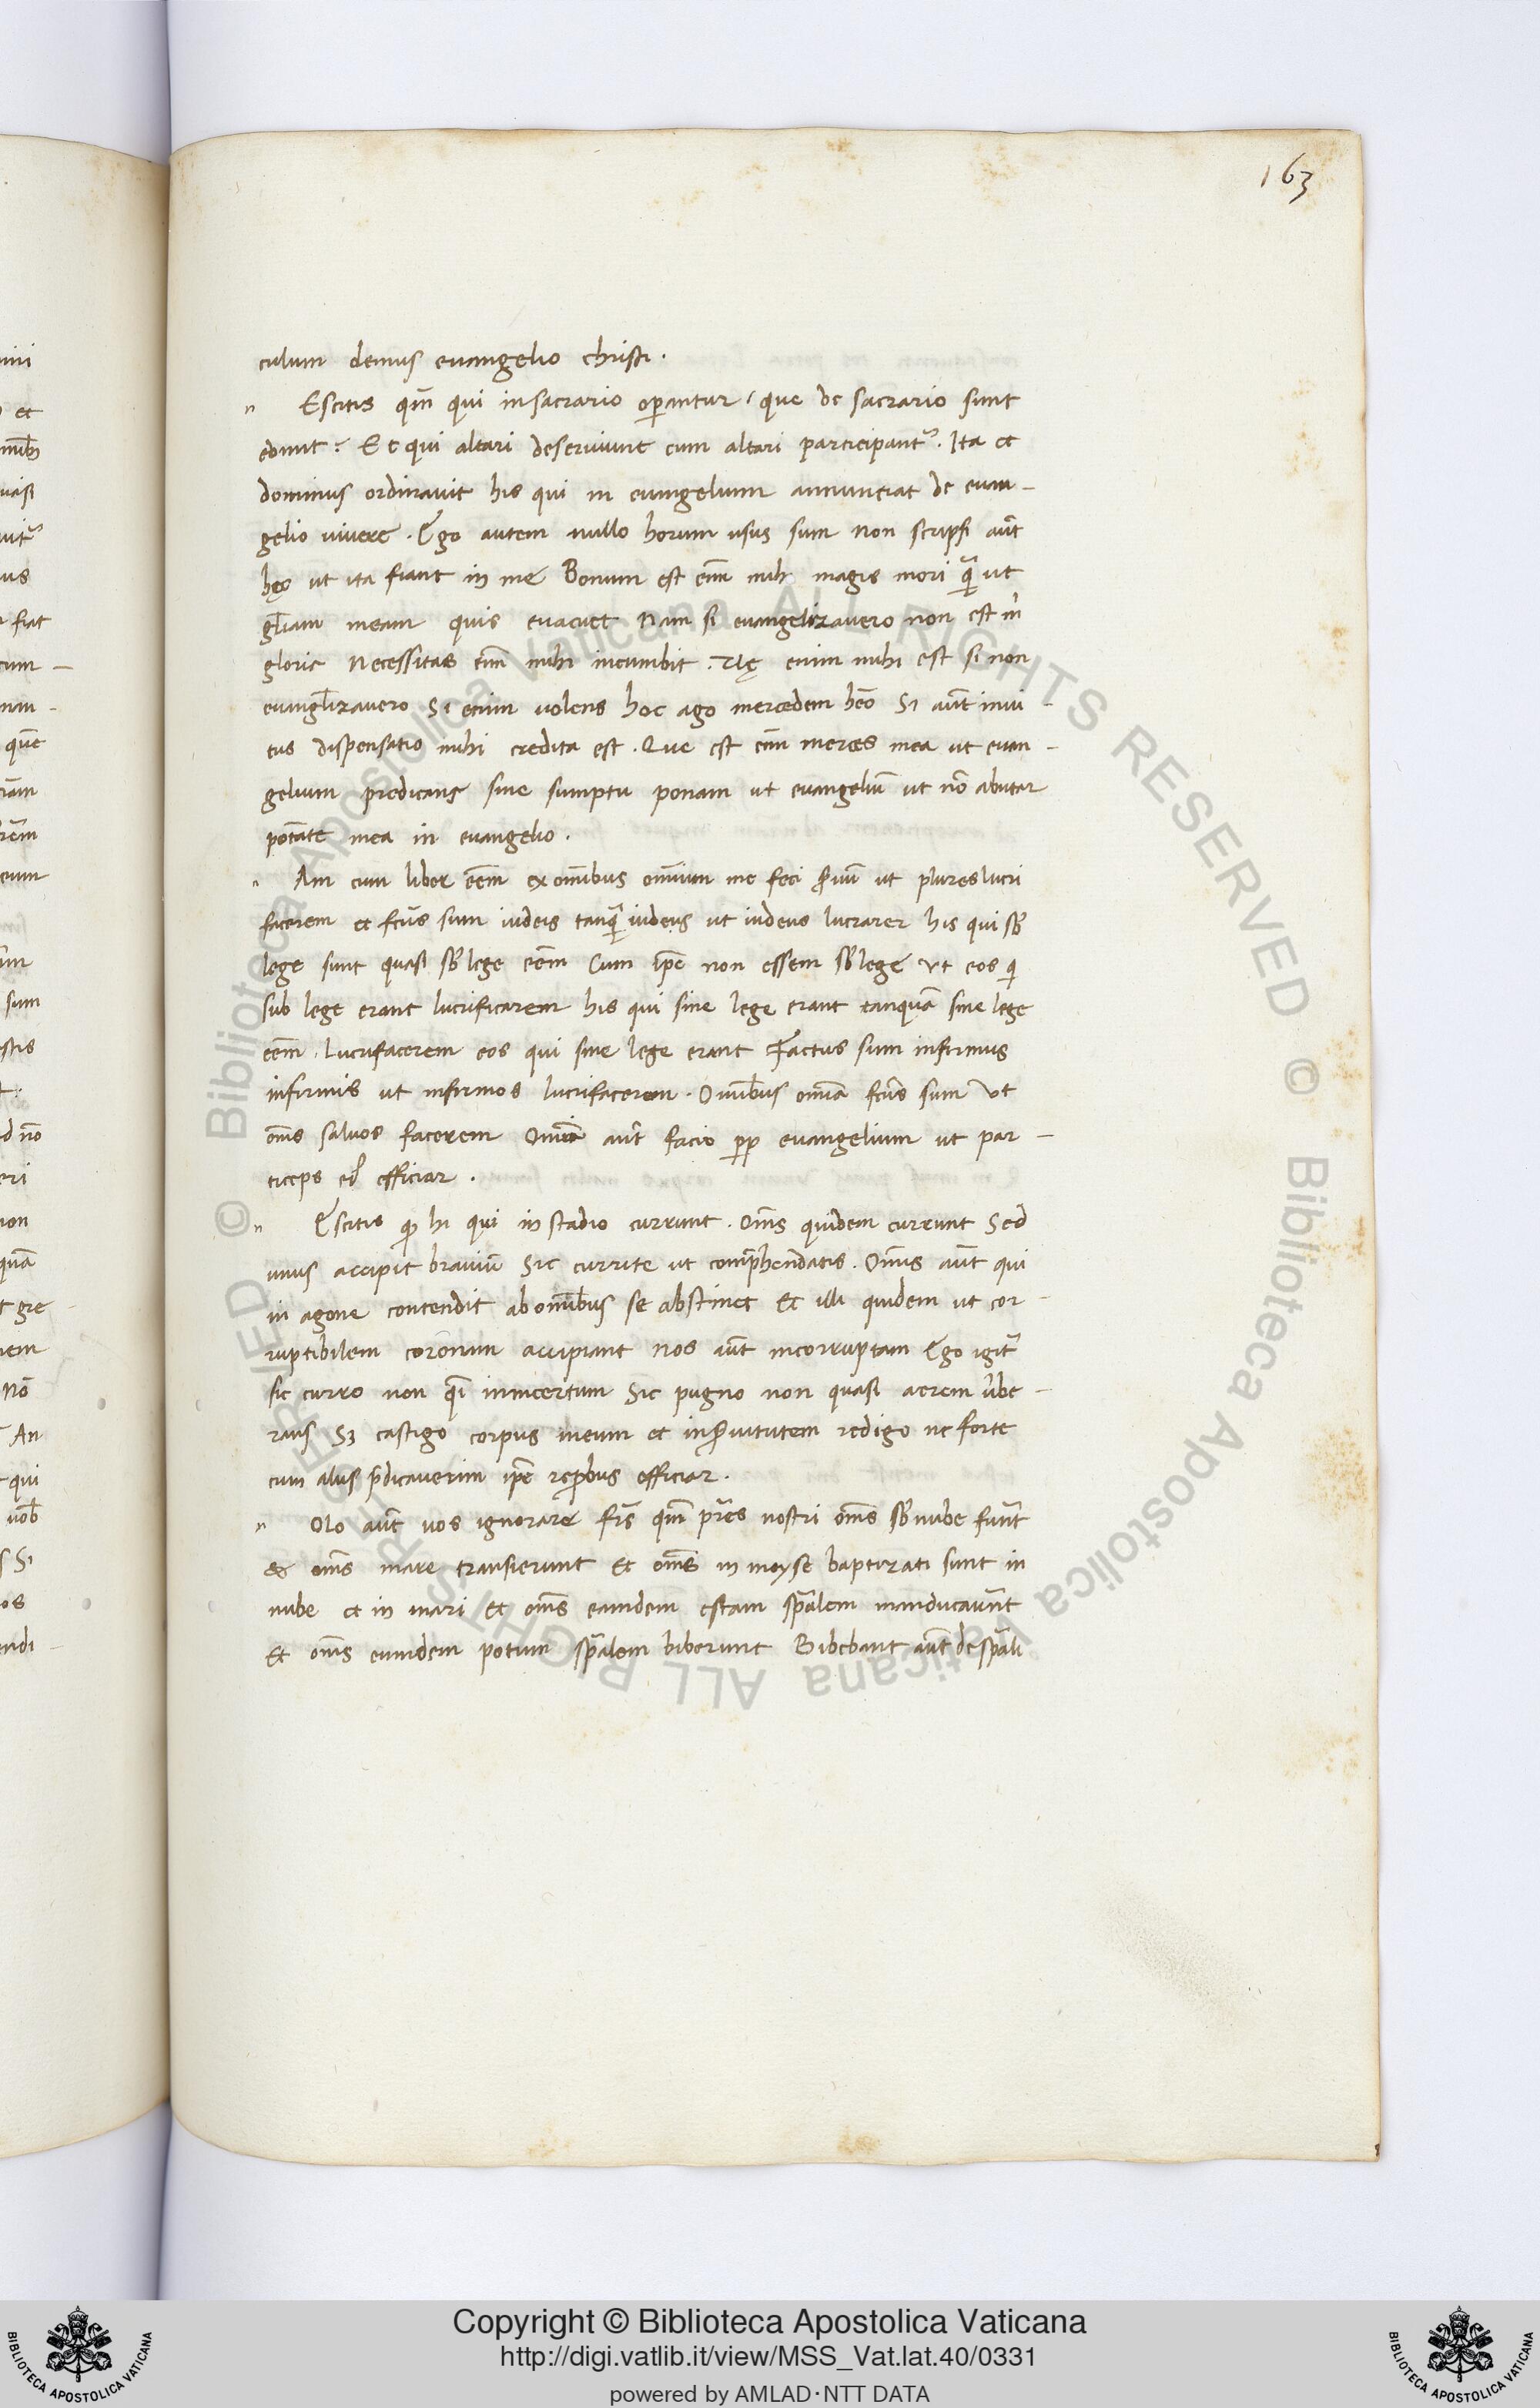 163
culum demus euangelio christi.
n Escitis qm̄ qui insacrario oꝑantur / que de sacrario sunt
edunt? Et qui altari deseruiunt cum altari participantᷣ. Ita et
dominus ordinauit his qui in euangelium annunciat de euan-
gelio uiuere. Ego autem nullo horum usus sum Non scripsi aut̄
hęc ut ita fiant in me Bonum est enī mihi magis mori qᷓ ut
gl̄iam meam quis euacuet Nam si euangelizauero non est m̄
glorie Necessitas enī mihi incumbit. Uę enim mihi est si non
euangl̄izauero Si enim uolens hoc ago mercedem hēo Si aut̄ inui-
tus dispensatio mihi credita est. Que est enī merces mea ut euan-
gelium predicans sine sumptu ponam ut euangeliū ut nō abutar
potātē mea in euangelio.
n Am cum liber eēm ex omībus omīum me feci ẜuū ut plures lucri
facerem et fcūs sum iudeis tanqᷓ iudeus ut iudeos lucrarer his qui sƀ
lege sunt quasi sƀ lege eēm Cum ip̄e non essem sƀ lege ut eos qi
sub lege erant lucrificarem his qui sine lege erant tanquā sine lege
eēm. Lucrifacerem eos qui sine lege erant Factus sum infirmus
infirmis ut infirmos lucrifacerem. Omībus omīa fcūs sum ut
om̄s saluos facerem Omīa aut̄ facio ꝓp euangelium ut par-
ticeps eꝰ efficiar.
n Escitis qᷤ hi qui in stadio currunt. Om̄s quidem currunt Sed
unus accipit brauiū Sic currite ut comp̄hendatis. Omīs aut̄ qui
in agone contendit ab omībus se abstinet Et illi quidem ut cor-
ruptibilem coronam accipiant Nos aut̄ incorruptam Ego igitᷣ
sic curro non qi inincertum Sic pugno non quasi aerem ūbe-
rans Sꝫ castigo corpus meum et in ẜuitutem redigo ne forte
cum aliis p̄dicauerim ip̄e reꝓbus efficiar.
n Olo aut̄ uos ignorare fr̄s qm̄ pr̄es nostri om̄s sƀ nube fuūt
& om̄s mare transierunt Et om̄s in moyse baptizati sunt in
nube et in mari Et om̄s eamdem escam sp̄alem manducauūt
Et om̄s eumdem potum sp̄alem biberunt Bibebant aut̄ de sp̄ali
Copyright © Biblioteca Apostolica Vaticana
http://digi.vatlib.it/view/MSS_Vat.lat.40/0331
powered by AMLAD·NTT DATA